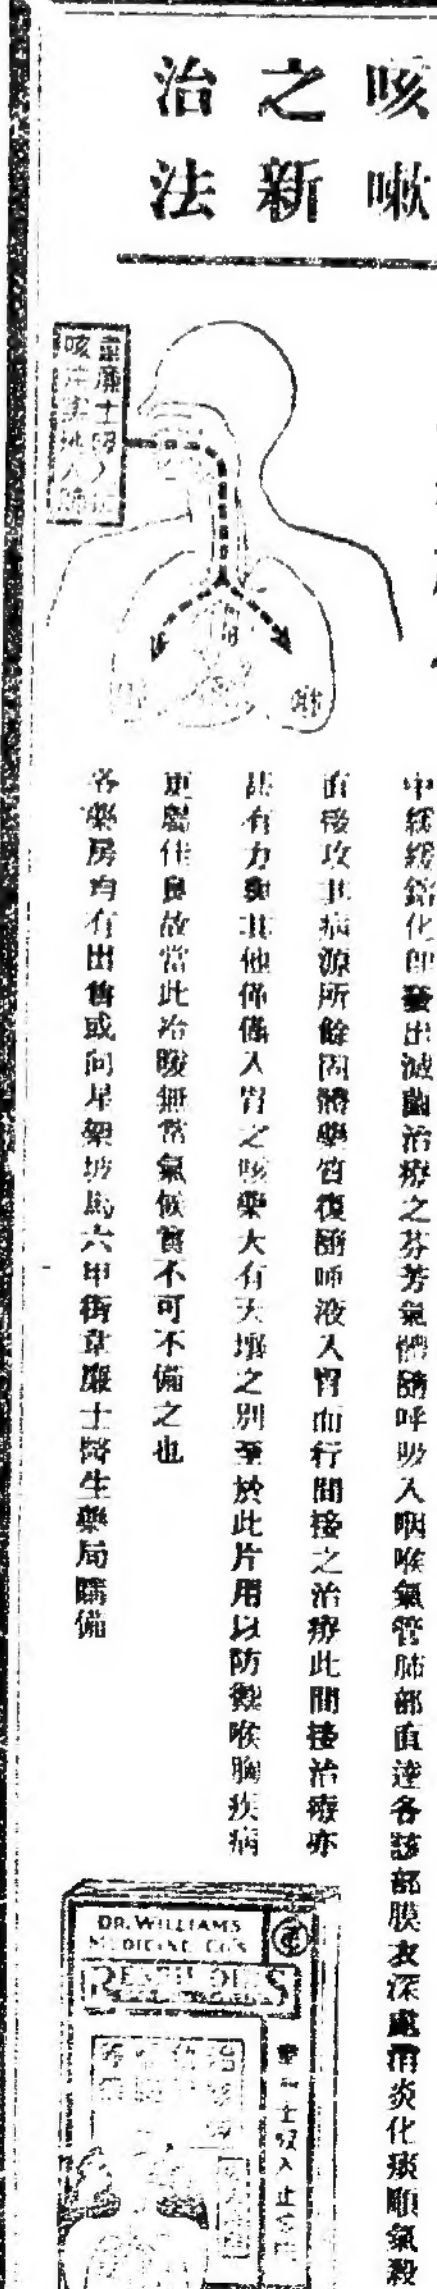 咳嗽
之新
治法
韋廉士吸入止
咳片實地入肺
胃
肺
肺
中緩緩鎔化即發出滅菌治療之芬芳氣體隨呼吸入咽喉氣管肺部直達各該部膜衣深處消炎化痰順氣殺
直接攻其病源所餘固體藥質復隨唾液入胃而行間接之治療此間接治療亦
甚有力與其他僅僅入胃之咳藥大有天壤之別至於此片用以防禦喉胸疾病
更屬佳良故當此冷暖無常氣候實不可不備之也
各藥房均有出售或向星架坡馬六甲街韋廉士醫生藥局購備
DR. WILLIAMS
MEDICINE CO'S
韋廉士吸入止咳